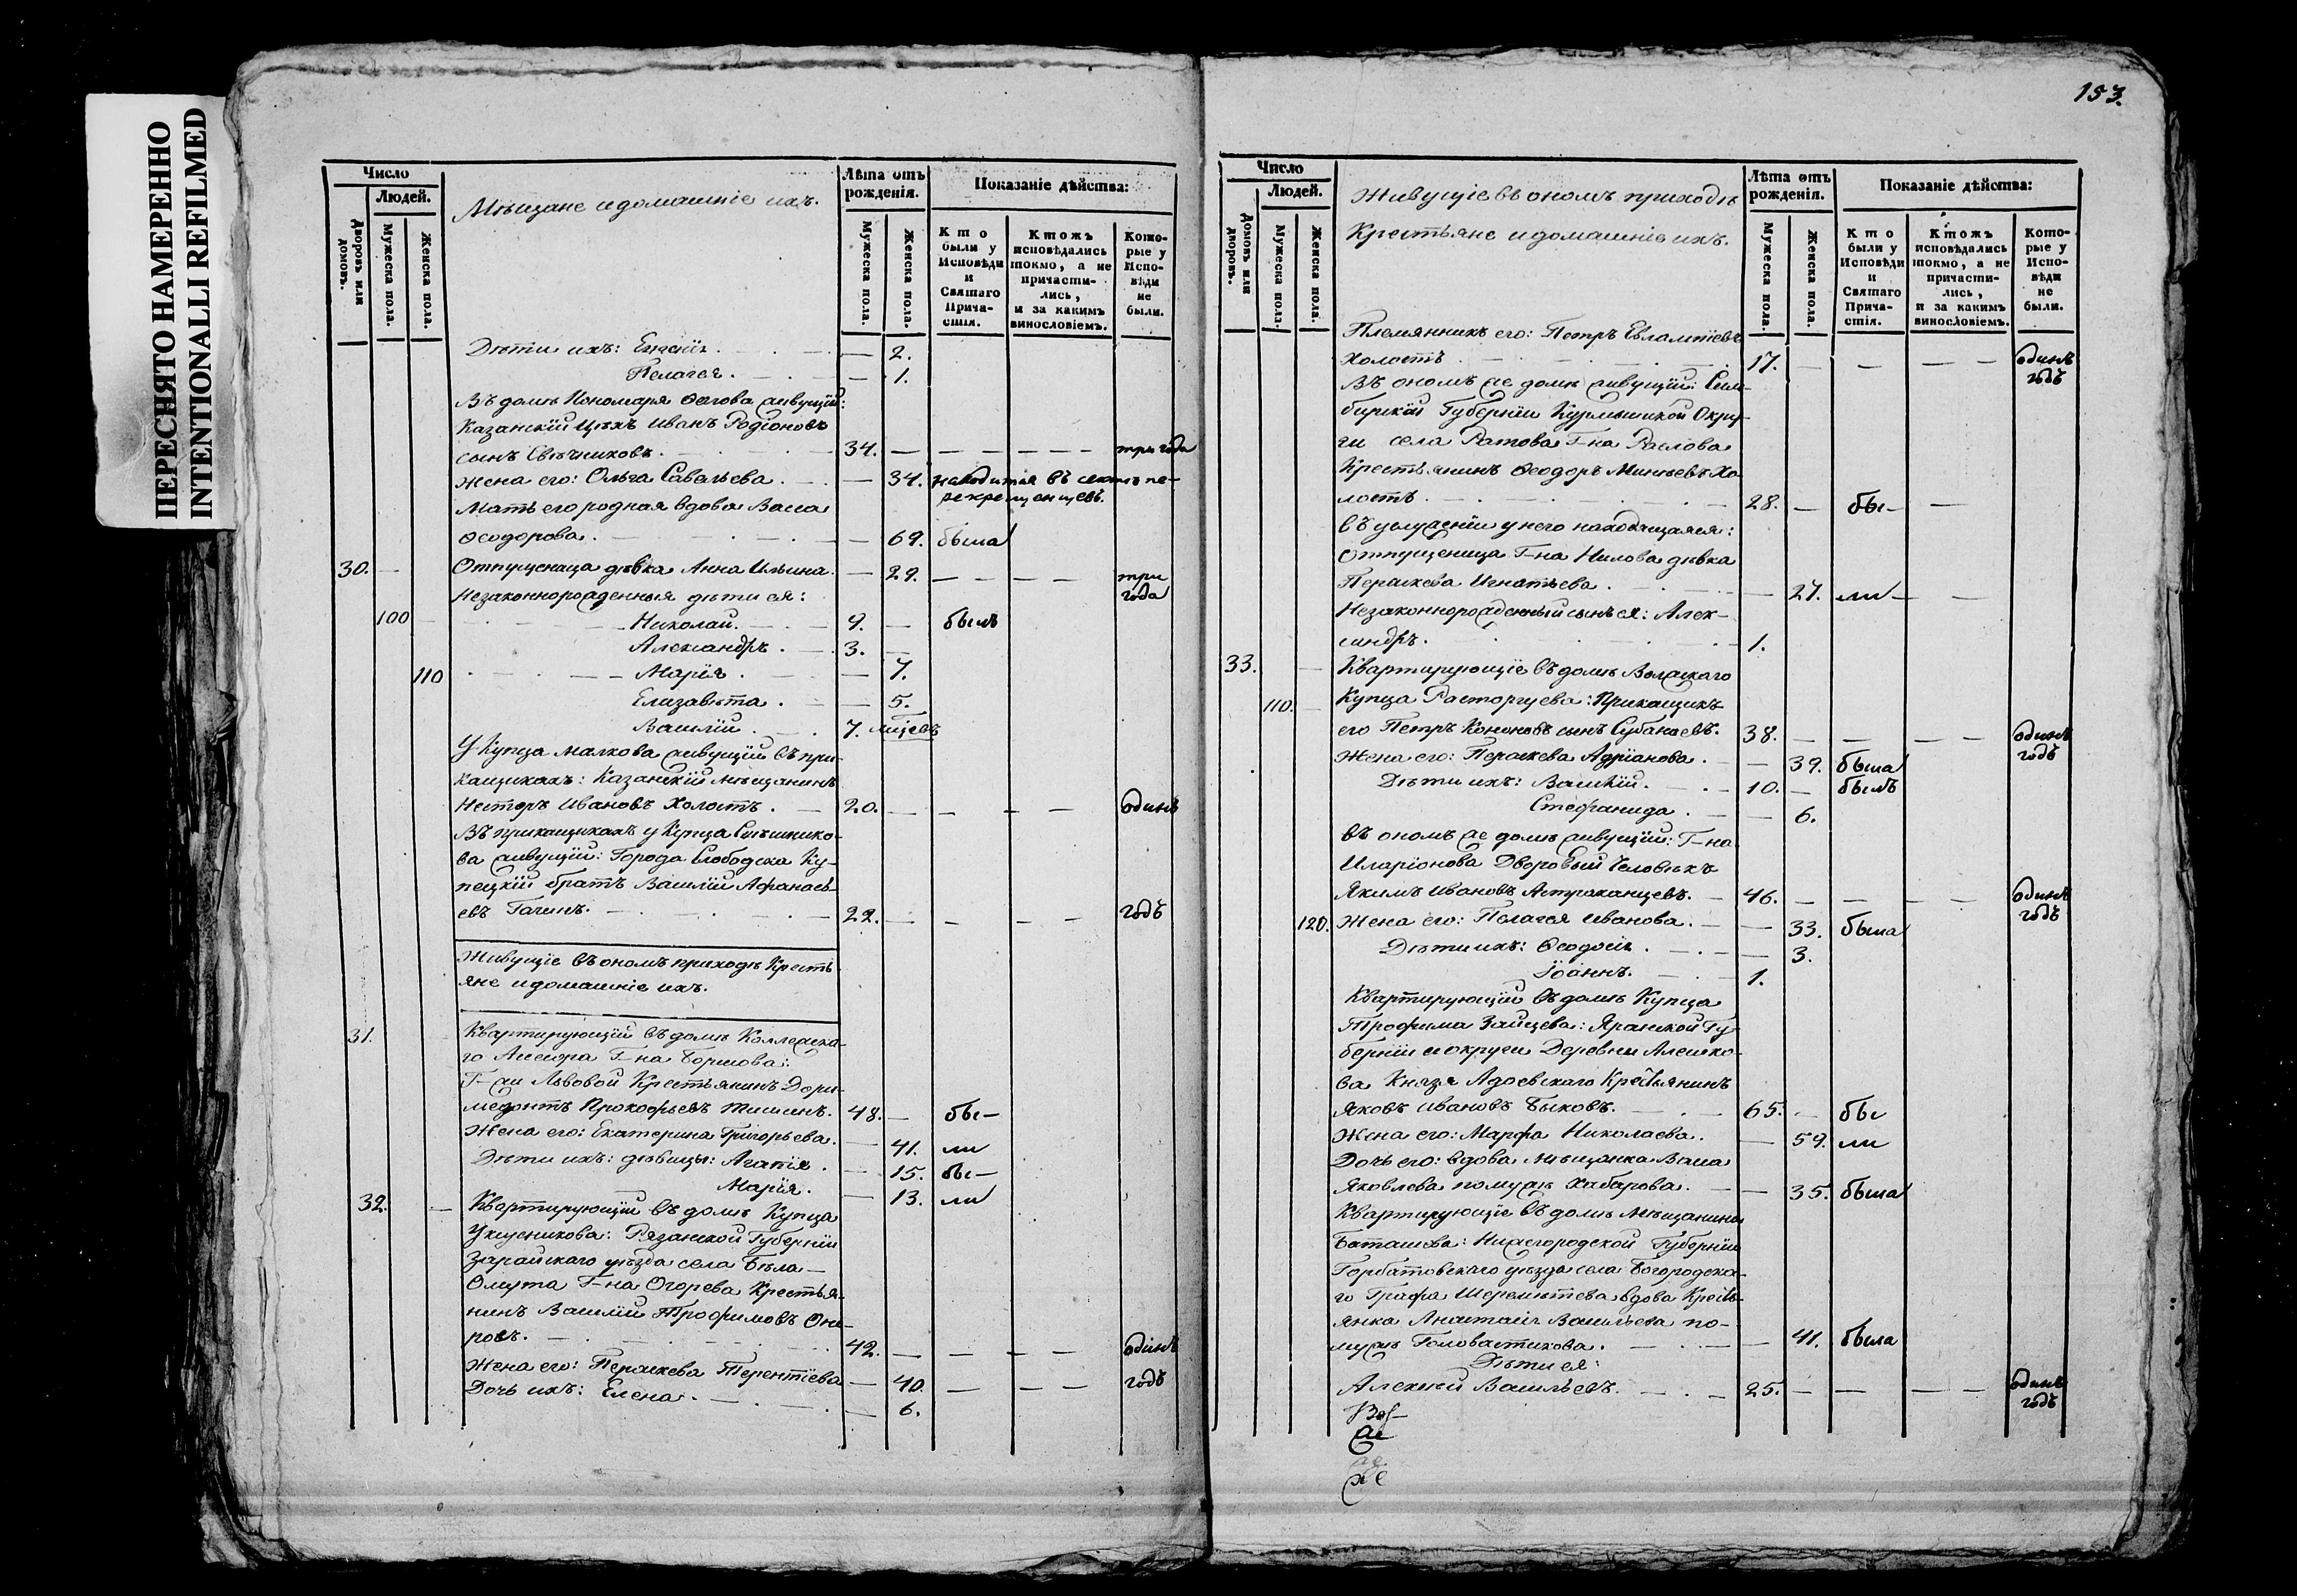 ПЕРЕСНЯТО НАМЕРЕННО
INTENTIONALLI REFILMED
Число
Людей.
Дворовъ или домовъ.
Мужеска пола.
Женска пола.
Мѣщане и домашніе ихъ.
Лѣта отъ рожденія.
Мужеска пола.
Женска пола.
Показаніе дѣйства:
Кто были у Исповѣди и Святаго Причастія.
Ктожъ исповѣдались токмо, а не причастились, и за какимъ винословіемъ.
Которые у Исповѣди не были.
Дѣти ихъ: — 2.
Пелагея. — 1.
Въ домѣ Пономаря живущій:
Казанскій Цѣхъ Иванъ Родіоновъ
сынъ Свѣчниковъ. 34. — — — — — три года
жена его: Ольга Савельева. — 34. находится въ сектѣ пе-
рекрещенцевъ.
Мать его родная вдова Васса
Ѳеодорова. — 69. была
30. — Отпущеница дѣвка Анна Ильина. — 29. — — — — три года
Незаконнорожденныя дѣти ея:
100 — Николай. 9. — былъ
Александръ. 3. —
110 Марія. — 7.
Елизавета. — 5.
Василій. 7.
У Купца Малкова живущій въ при-
кащикахъ: Казанскій мѣщанинъ
Несторъ Ивановъ Холостъ. 20. — — — — одинъ
Въ прикащикахъ у Купца
ва живущій: Города Слободска Ку-
пецкій братъ Василій Афанась-
евъ 22. — — — — годъ
Живущіе въ ономъ приходѣ Кресть-
яне и домашніе ихъ.
31. Квартирующій въ домѣ Коллежска-
го Ассесора Г-на Борисова:
Г-жи Львовой Крестьянинъ Дори-
медонтъ Прокофьевъ Тишинъ. 48. — бы-
Жена его: Екатерина Григорьева. — 41. ли
Дѣти ихъ: дѣвицы: Агапія. — 15. бы-
Марія. — 13. ли
32. — Квартирующій въ домѣ Купца
Уксусникова: Рязанской Губерніи
Зарайскаго уѣзда села Бѣла-
Омута Г-на Огорева Крестья-
нинъ Василій Трофимовъ
ровъ. 42. — — — — одинъ
Жена его: Параскева Терентіева — 40. — — — годъ
Дочь ихъ: Елена. — 6.
153.
Число
Людей.
Домовъ или дворовъ.
Мужеска пола.
Женска пола.
Живущіе въ ономъ приходѣ
Крестьяне и домашніе ихъ.
Лѣта отъ рожденія.
Мужеска пола.
Женска пола.
Показаніе дѣйства:
Кто были у Исповѣди и Святаго Причастія.
Ктожъ исповѣдались токмо, а не причастились, и за какимъ винословіемъ.
Которые у Исповѣди не были.
Племянникъ его: Петръ Евлампіевъ
холостъ 17. — — — — одинъ годъ
Въ ономъ же домѣ живущій: Сим-
бирской Губерніи Курмышской Окру-
ги села Ратова Г-на Раслова
Крестьянинъ Ѳеодоръ Минѣевъ Хо-
лостъ. 28. — бы- —
въ услуженіи у него находящаяся:
Отпущеница Г-на Нилова дѣвка
Параскева Игнатьева. — 27. ли — —
Незаконнорожденный сынъ ея: Алек-
сандръ. 1.
33. — Квартирующіе въ домѣ Волжскаго
110. — Купца Расторгуева: Прикащикъ
его Петръ Кононовъ сынъ 38. — — — — одинъ годъ
Жена его: Параскева Адріанова. — 39. была
Дѣти ихъ: Василій. 10. — былъ
Стефанида. — 6.
въ ономъ же домѣ живущій: Г-на
Иларіонова Дворовый Человѣкъ
Якимъ Ивановъ Астраханцевъ. 46. — — — — одинъ годъ
120. Жена его: Пелагея Иванова. — 33. была
Дѣти ихъ: Ѳеодосія. — 3.
Іоаннъ. 1.
Квартирующій въ домѣ Купца
Трофима Зайцева: Яранской Гу-
берніи и округи Деревни Алешко-
ва Князя Адоевскаго Крестьянинъ
Яковъ Ивановъ Быковъ. 65. — бы
Жена его: Марфа Николаева. — 59. ли
Дочь его: вдова Мѣщанка Васса
Яковлева по мужѣ Хабарова. — 35. была
Квартирующіе въ домѣ Мѣщанина
Баташева: Нижегородской Губерніи
Горбатовскаго уѣзда села Богородска-
го Графа Шереметева вдова Кресть-
янка Анастасія Васильева по-
мужѣ Головастикова. — 41. была
Дѣти ея:
Алексѣй Васильевъ. 25. — — — — одинъ годъ
же
же